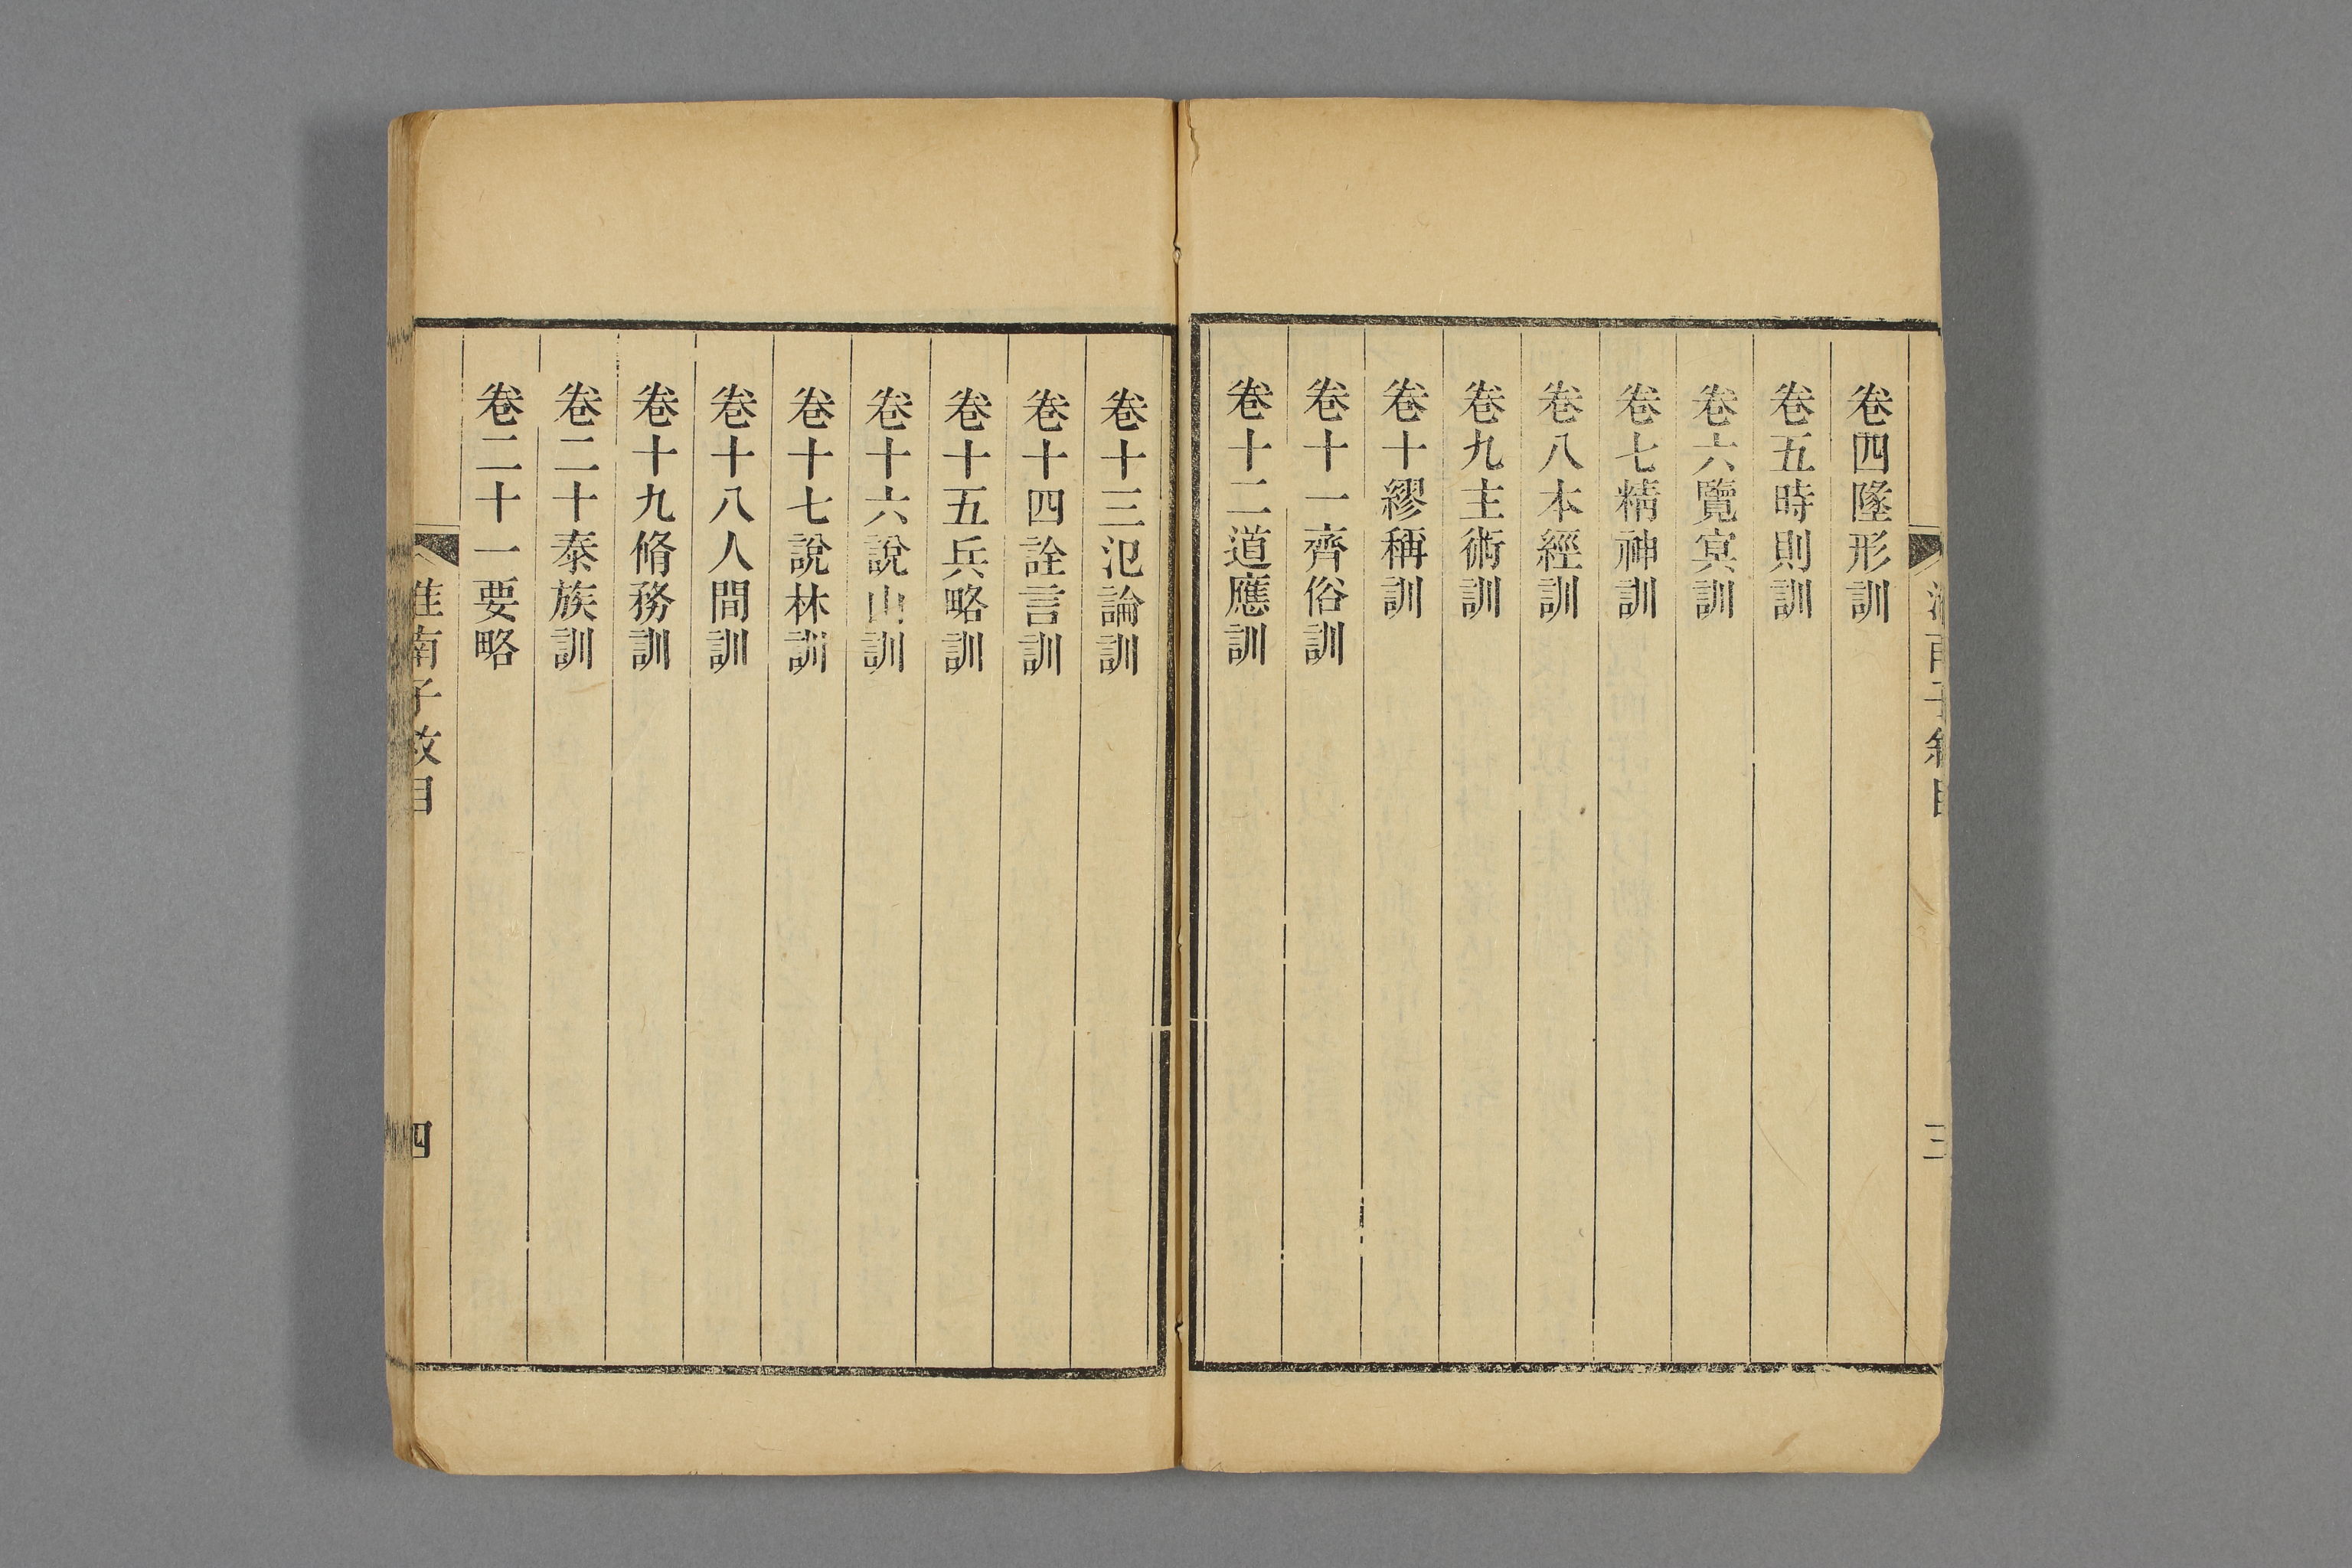 卷四墬形訓
卷五時則訓
卷六覽冥訓
卷七精神訓
卷八本經訓
卷九主術訓
卷十繆稱訓
卷十一齊俗訓
卷十二道應訓
三
卷十三氾論訓
卷十四詮言訓
卷十五兵略訓
卷十六說山訓
卷十七說林訓
卷十八人間訓
卷十九脩務訓
卷二十泰族訓
卷二十一要略
淮南子敘目
四